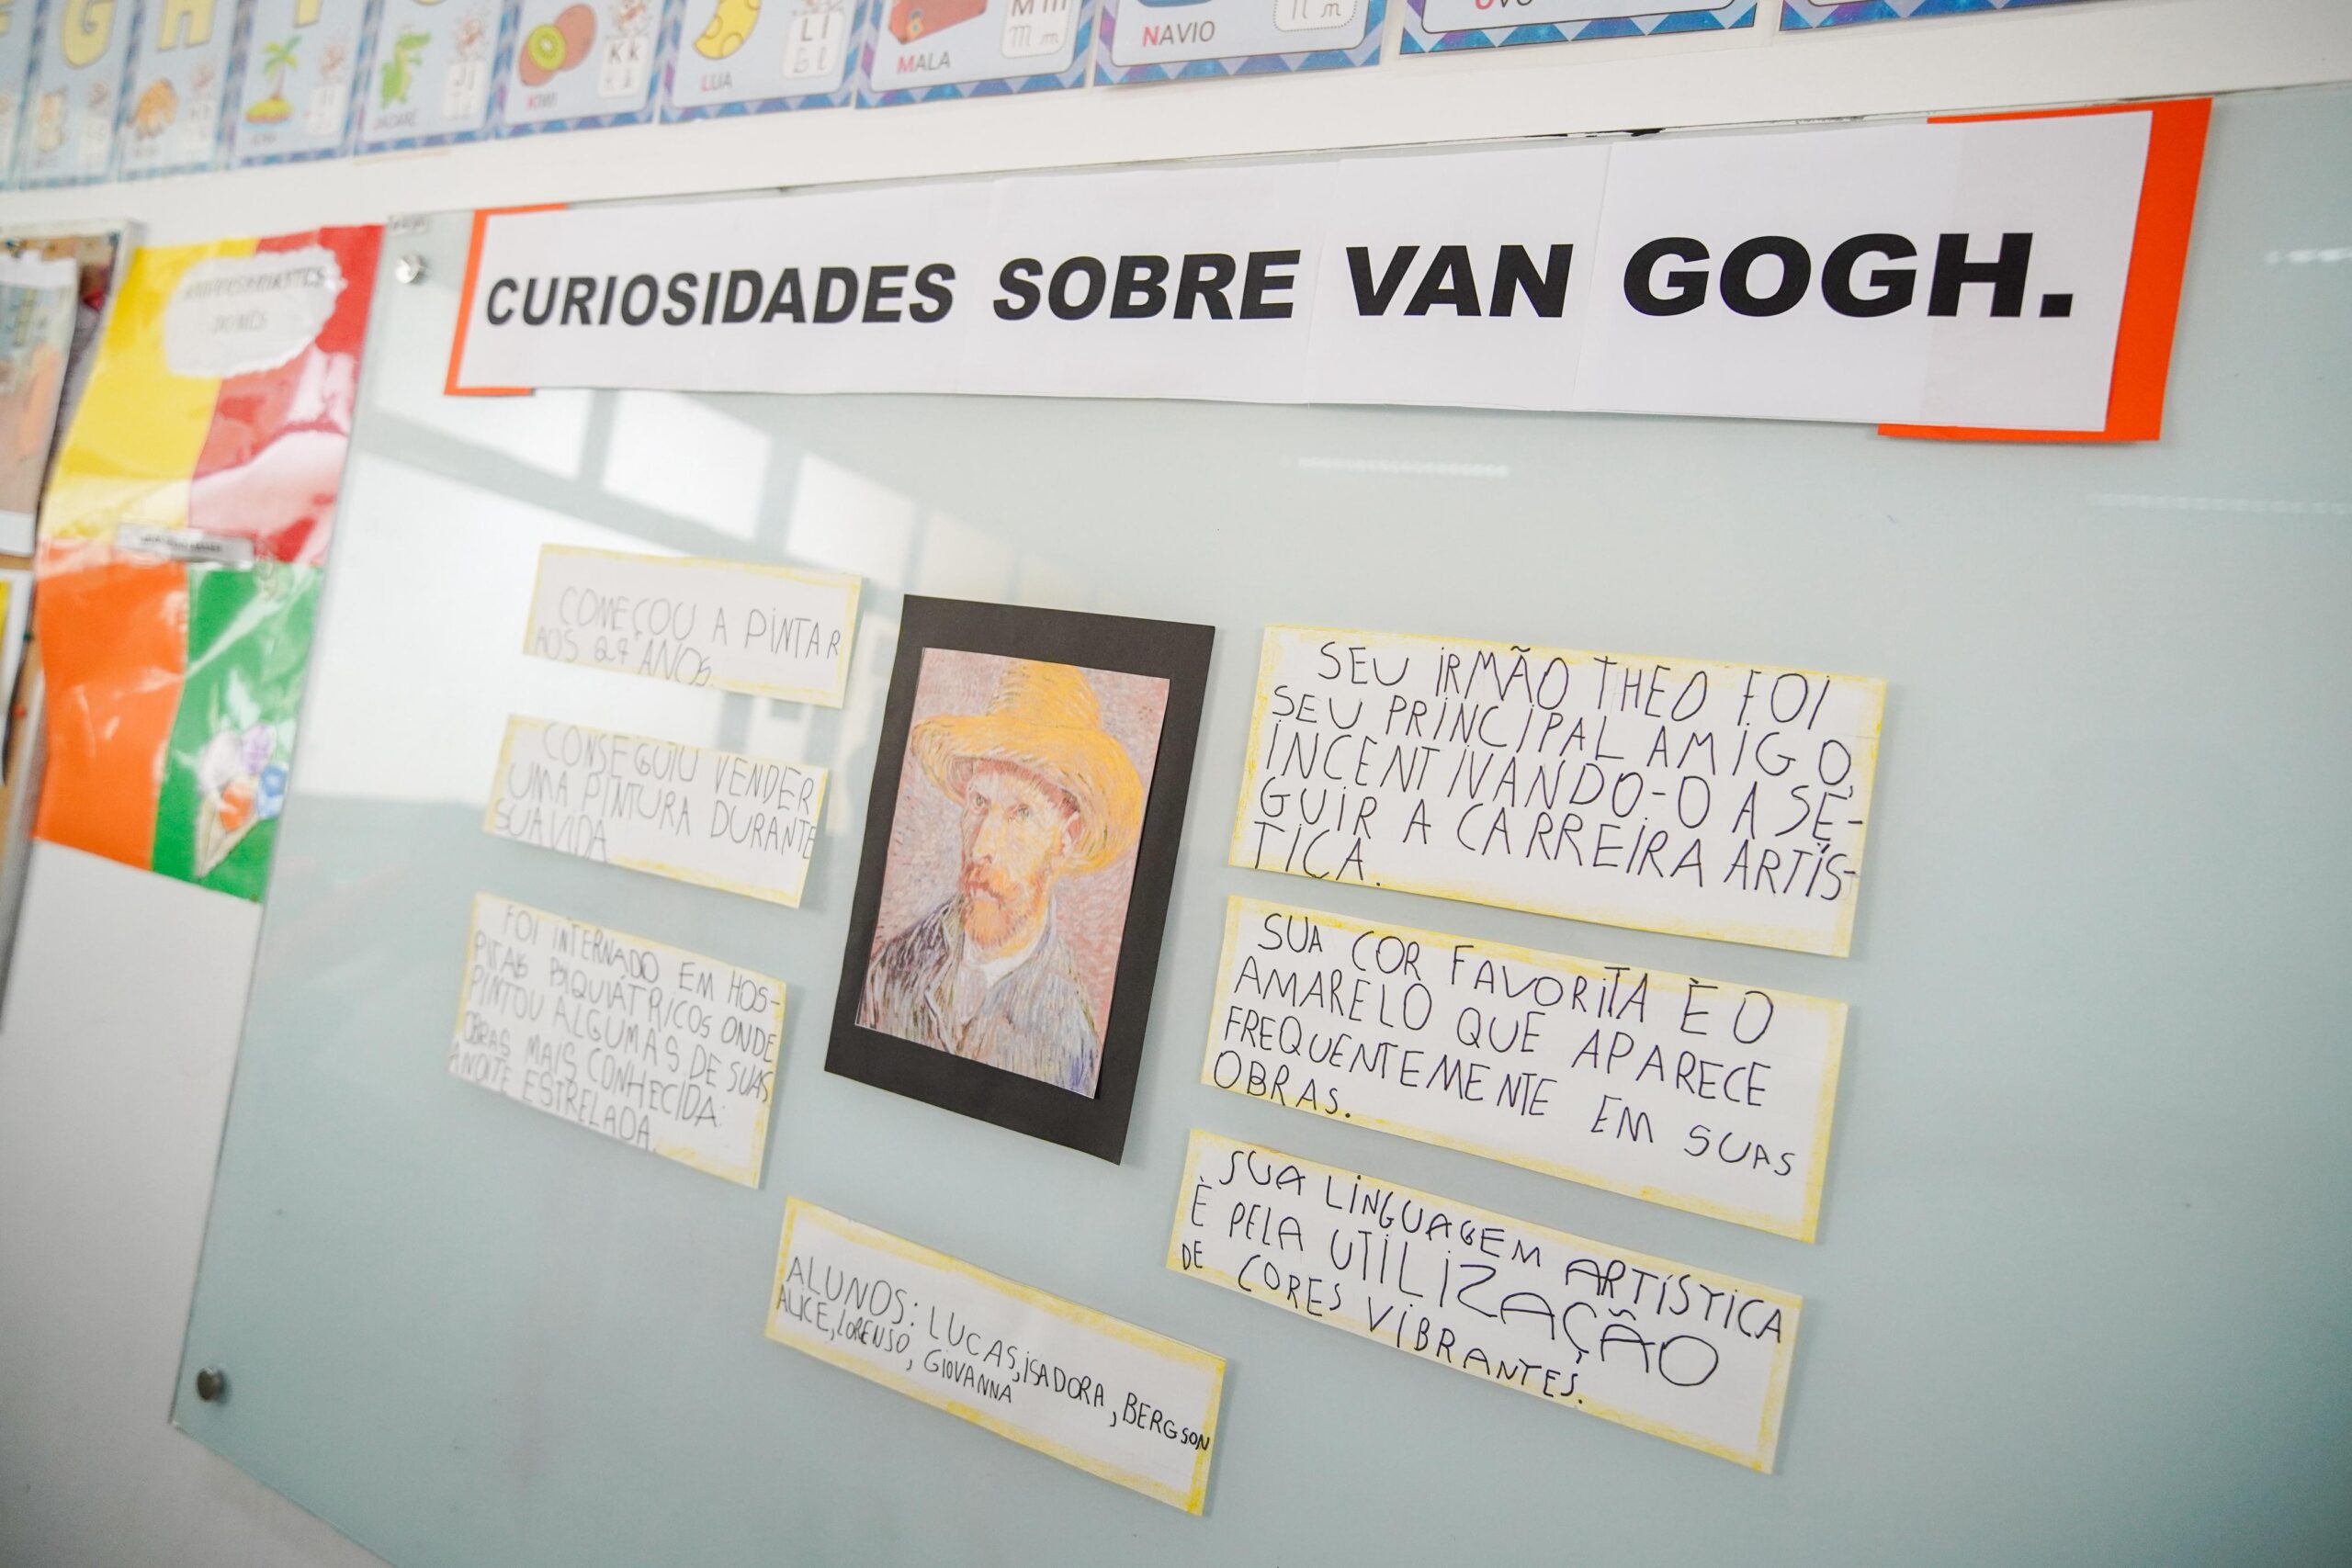 KIWI
Kk
LUA
Ll
MALA
Mm
NAVIO
ANIVERSARIANTES
DO MÊS
CURIOSIDADES SOBRE VAN GOGH.
COMEÇOU A PINTAR
AOS 27 ANOS.
CONSEGUIU VENDER
UMA PINTURA DURANTE
SUA VIDA
FOI INTERNADO EM HOS-
PITAIS PSIQUIATRICOS ONDE
PINTOU ALGUMAS DE SUAS
OBRAS MAIS CONHECIDA:
A NOITE ESTRELADA.
SEU IRMÃO THEO FOI
SEU PRINCIPAL AMIGO,
INCENTIVANDO-O A SE-
GUIR A CARREIRA ARTÍS-
TICA.
SUA COR FAVORITA È O
AMARELO QUE APARECE
FREQUENTEMENTE EM SUAS
OBRAS.
SUA LINGUAGEM ARTÍSTICA
È PELA UTILIZAÇÃO
DE CORES VIBRANTES.
ALUNOS: LUCAS, ISADORA, BERGSON
ALICE, LORENSO, GIOVANNA